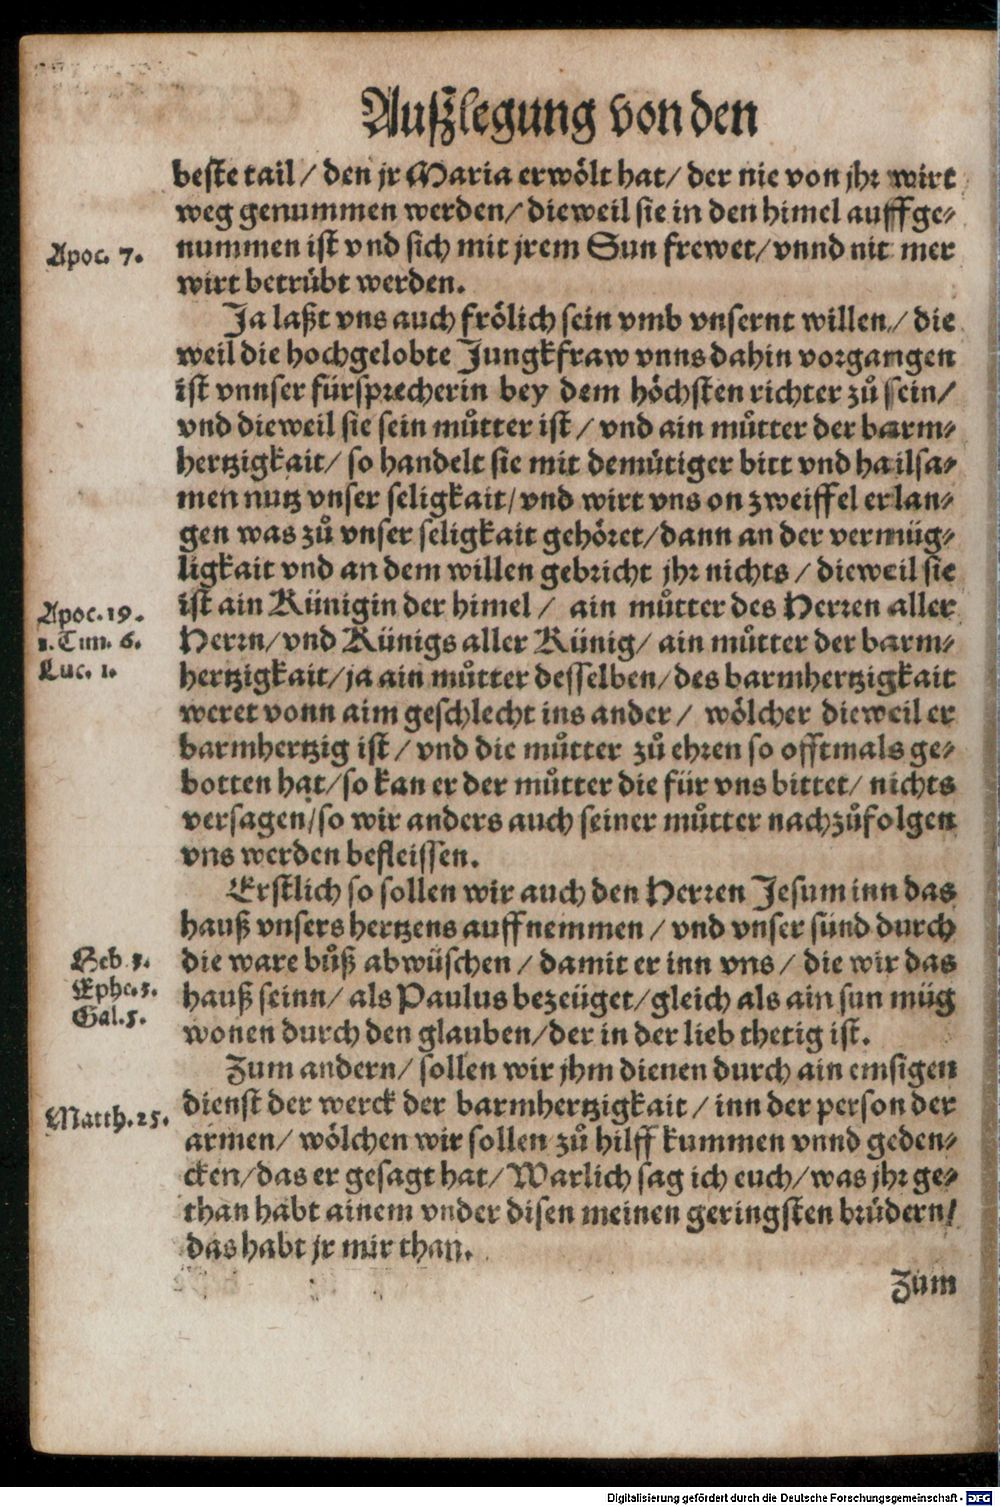 Auſzlegung von den
beſte tail / den jr Maria erwoͤlt hat / der nie von jhr wirt
weg genummen werden / dieweil ſie in den himel auffge⸗
Apoc. 7.
nummen iſt vnd ſich mit jrem Sun frewet / vnnd nit mer
wirt betruͤbt werden.
Ja laßt vns auch froͤlich ſein vmb vnſernt willen / die
weil die hochgelobte Jungkfraw vnns dahin vorgangen
iſt vnnſer fürſprecherin bey dem hoͤchſten richter zuͦ ſein /
vnd dieweil ſie ſein muͦtter iſt / vnd ain muͦtter der barm⸗
hertzigkait / ſo handelt ſie mit demuͤtiger bitt vnd hailſa⸗
men nutz vnſer ſeligkait / vnd wirt vns on zweiffel erlan⸗
gen was zuͦ vnſer ſeligkait gehoͤret / dann an der vermüg⸗
ligkait vnd an dem willen gebricht jhr nichts / dieweil ſie
Apoc. 19.
iſt ain Künigin der himel / ain muͦtter des Herren aller
1. Tim. 6.
Herrn / vnd Künigs aller Künig / ain muͦtter der barm⸗
Luc. 1.
hertzigkait / ja ain muͦtter desſelben / des barmhertzigkait
weret vonn aim geſchlecht ins ander / woͤlcher dieweil er
barmhertzig iſt / vnd die muͦtter zuͦ ehren ſo offtmals ge⸗
botten hat / ſo kan er der muͦtter die für vns bittet / nichts
verſagen / ſo wir anders auch ſeiner muͦtter nachzuͦfolgen
vns werden befleiſſen.
Erſtlich ſo ſollen wir auch den Herren Jeſum inn das
hauß vnſers hertzens auffnemmen / vnd vnſer ſünd durch
Heb. 3.
die ware buͦß abwüſchen / damit er inn vns / die wir das
Ephe. 3.
hauß ſeinn / als Paulus bezeüget / gleich als ain ſun müg
Gal. 5.
wonen durch den glauben / der in der lieb thetig iſt.
Zum andern / ſollen wir jhm dienen durch ain emſigen
Matth. 25.
dienſt der werck der barmhertzigkait / inn der perſon der
armen / woͤlchen wir ſollen zuͦ hilff kummen vnnd geden⸗
cken / das er geſagt hat / Warlich ſag ich euch / was jhr ge⸗
than habt ainem vnder diſen meinen geringſten bruͤdern /
das habt jr mir than.
Zum
Digitalisierung gefördert durch die Deutsche Forschungsgemeinschaft - DFG